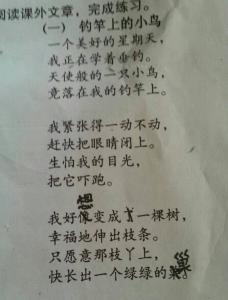 阅读课外文章，完成练习。
(一) 钓竿上的小鸟
一个美好的星期天，
我正在学着垂钓。
天使般的一只小鸟，
竟落在我的钓竿上。
我紧张得一动不动，
赶快把眼睛闭上。
生怕我的目光，
把它吓跑。
想
我好像变成了一棵树，
幸福地伸出枝条。
只愿意那枝丫上，
巢
快长出一个绿绿的巢。